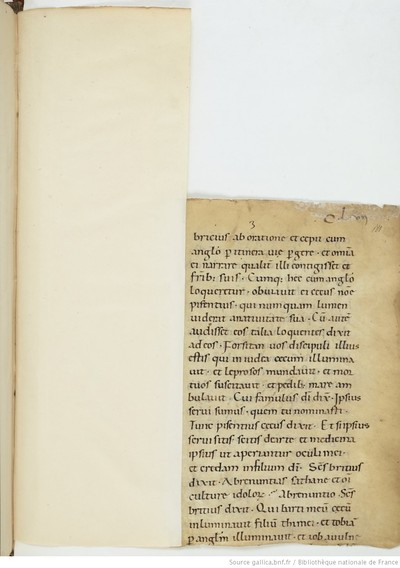 3
bricius ab oratione et cepit cum
anglo p itinera vie pgere · et omia
ei narrare qualit illi contigisset et
frib; suis · Cumq; hec cum anglo
loqueretur · obuiauit ei cecus noe
pisentius · qui num quam lumen
uiderat a natiuitate sua · Cu aute
audisset eos talia loquentes dixit
ad eos · Forsitan uos discipuli illius
estis qui in iudea cecum illumina
uit · et leprosos mundauit · et mor
tuos suscitauit · et pedib; mare am
bulauit · Cui famulus di dix · Ipsius
serui sumus · quem tu nominasti ·
Tunc pisentius cecus dixit · Et si ipsius
serui estis
ipsius ut aperiantur oculi mei ·
et credam in filium di · Scs britius
dixit · Abrenuntias sathane et oi
culture idolor · Abrenuntio · Scs
britius dixit · Qui barti meu cecu
inluminauit filiu thimei · et tobia
p anglm illuminauit · et iob a uulne
Source gallica.bnf.fr / Bibliothèque nationale de France